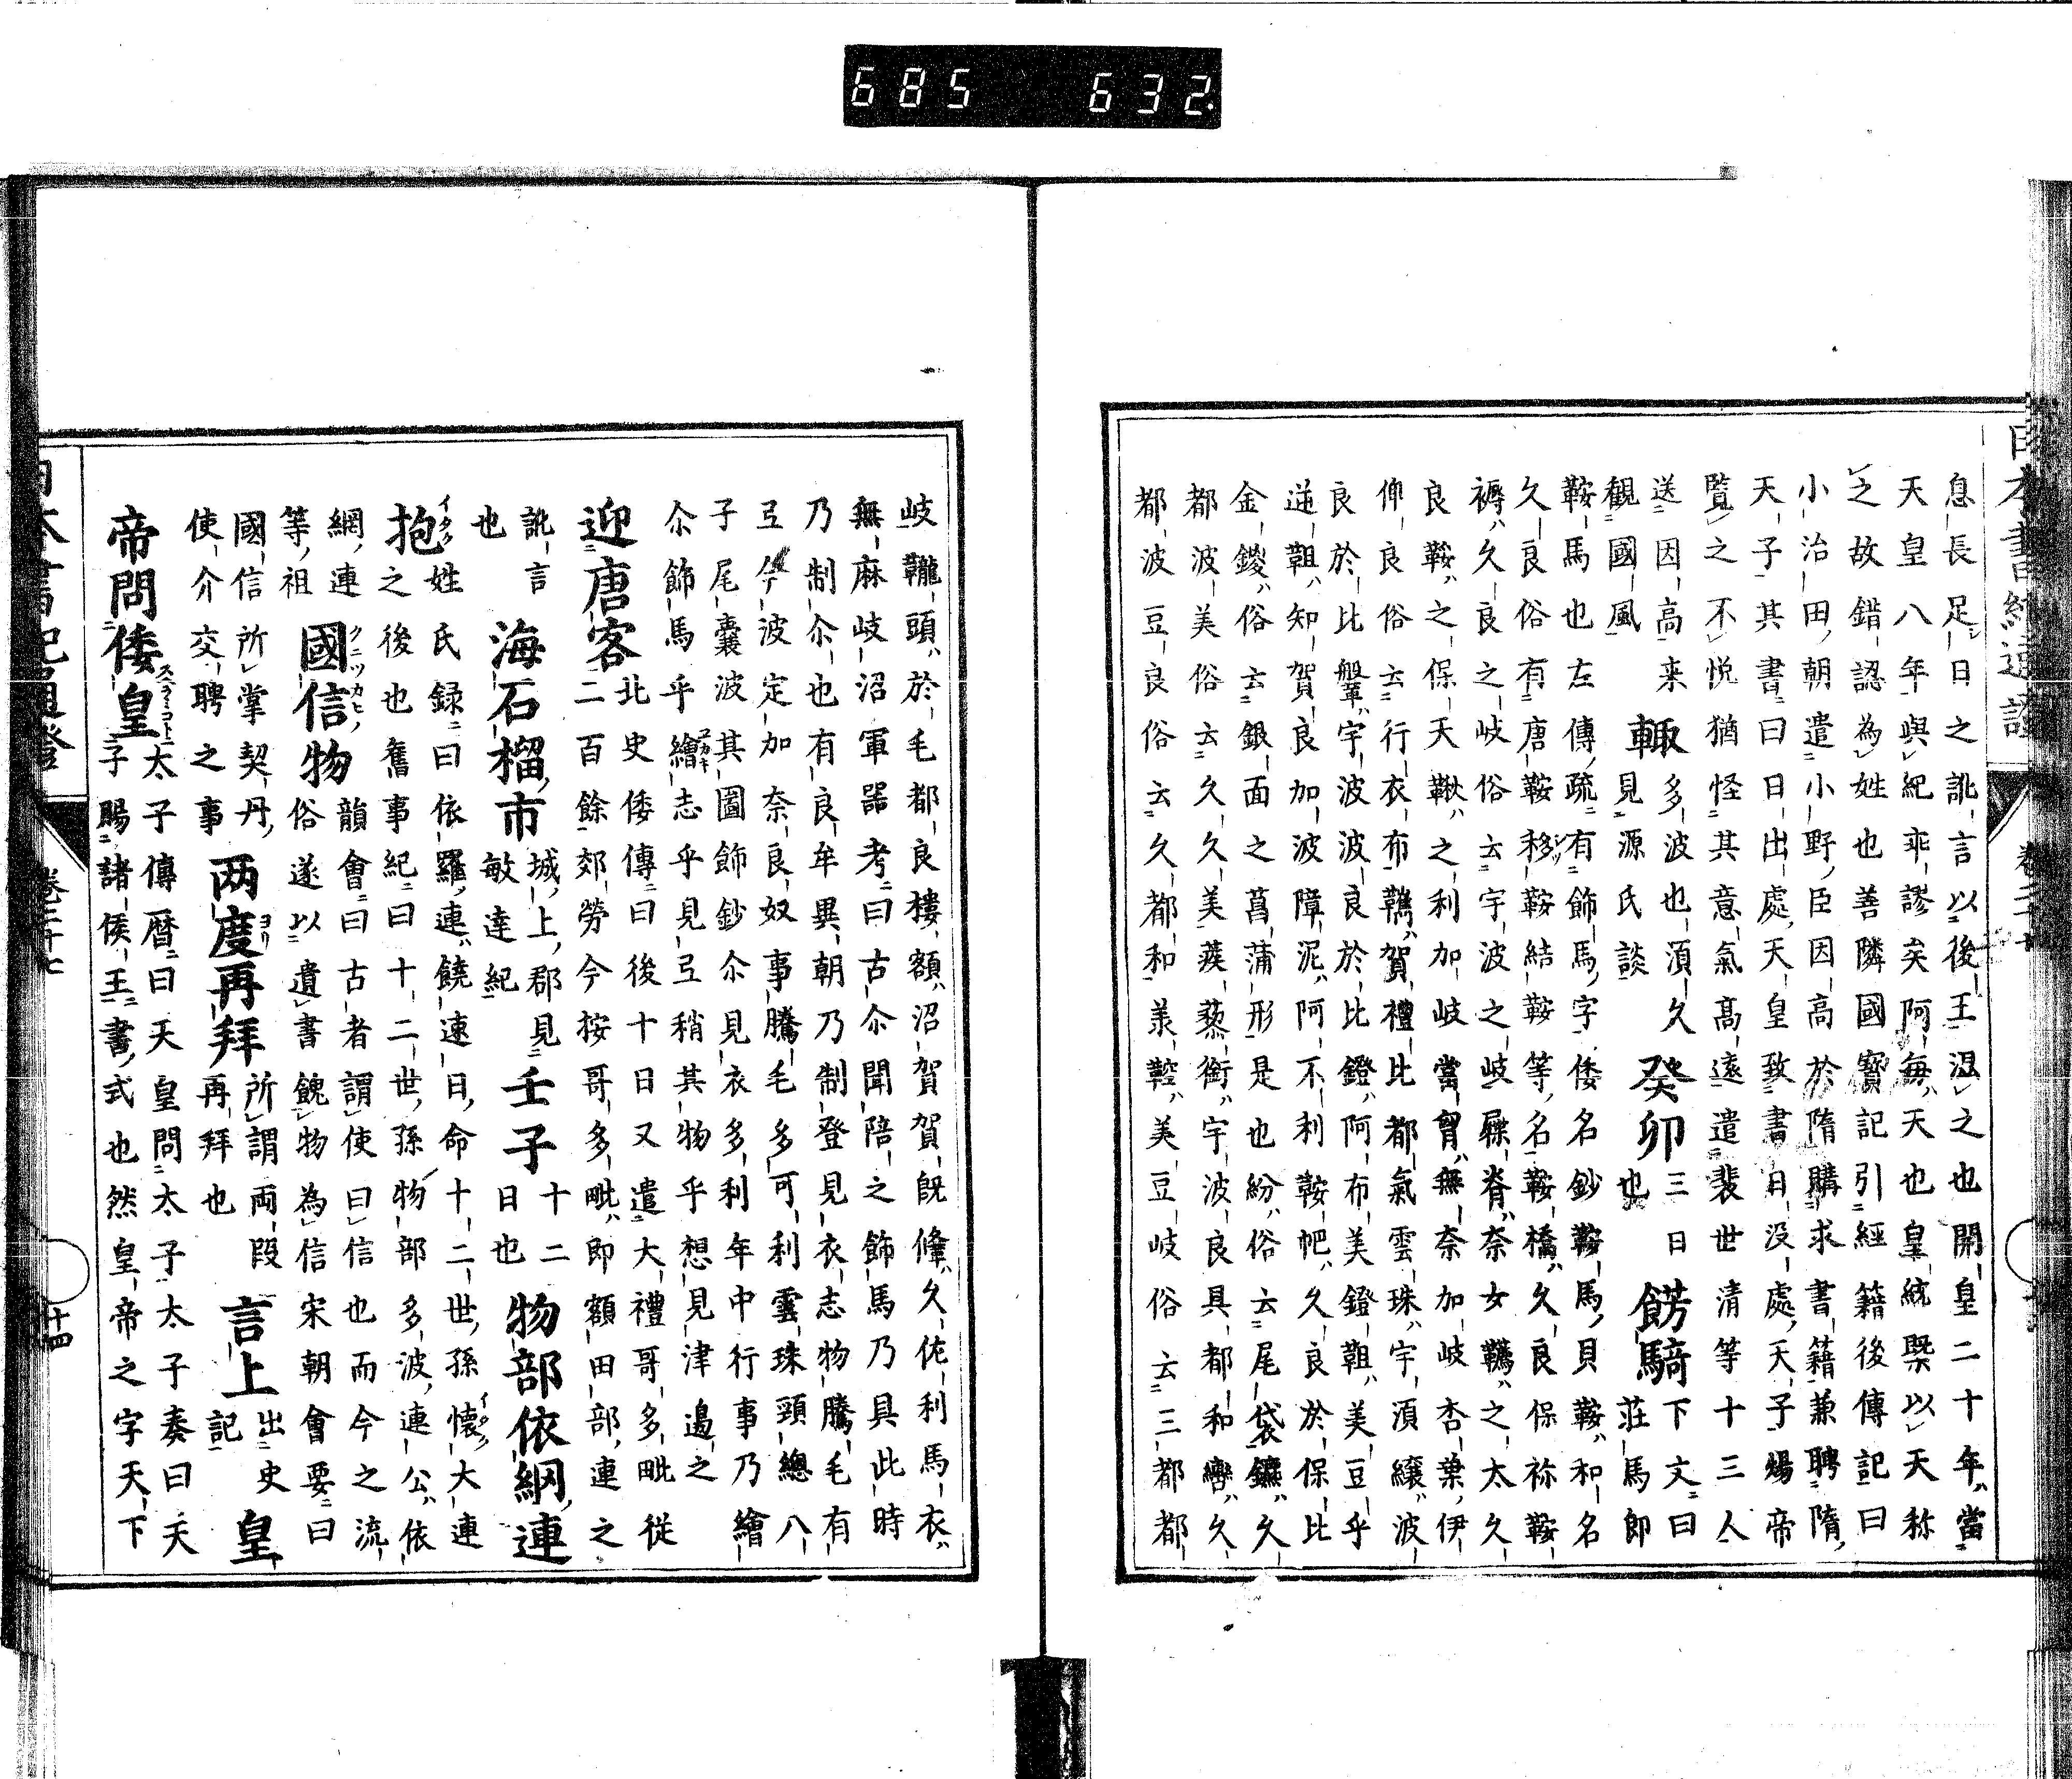 685 632
息長足日之訛言以後王温之也開皇二十年當
天皇八年與紀乖謬矣阿毎天也皇統槩以天称
之故錯認為姓也善隣國寳記引經籍後傳記曰
小治田朝遣小野臣因高於隋購求書籍兼聘隋
天子其書曰日出處天皇致書日没處天子煬帝
覧之不悦猶怪其意氣髙遠遣裴世清等十三人
送因高来
觀國風
輙
多波也湏久
見源氏談
癸卯
三日
也
餝騎
下文曰
荘馬即
鞍馬也左傳疏有飾馬字倭名鈔鞍馬貝鞍和名
久良俗有唐鞍移鞍結鞍等名鞍橋久良保祢鞍
褥久良之岐俗云宇波之岐屧脊奈女韉之太久
良鞍之保天鞦之利加岐當胷無奈加岐杏葉伊
俗云行衣布韉賀禮比都氣雲珠宇湏繰波
良於比鞶宇波波良於比鐙阿布美鐙靼美豆乎
逆靼知賀良加波障泥阿不利鞍帊久良於保比
金鑁俗云銀面之菖蒲形是也紛俗云尾袋鑣久
都波美俗云久久美蒺藜銜宇波良具都和轡久
都波豆良俗云久都和美鞚美豆岐俗云三都都
岐䪊頭於毛都良樓額沼賀賀既條久佐利馬衣
無麻岐沼軍器考曰古尒聞陪之飾馬乃具此時
乃制尒也有良牟異朝乃制登見衣志物騰毛有
弖今波定加奈良奴事騰毛多可利雲珠頸總八
子尾嚢波其圖飾鈔尒見衣多利年中行事乃繪
尒飾馬乎繪志乎見弖稍其物乎想見津邉之
迎唐客
北史倭傳曰後十日又遣大禮哥多毗従
二百餘郊勞今按哥多毗即額田部連之
訛言
也
海石榴市
城上郡見
敏達紀
壬子
十二
日也
物部依網連
抱
姓氏録曰依羅連饒速日命十二世孫懐大連
之後也舊事紀曰十二世孫物部多波連公依
網連
等祖
國信物
韻會曰古者謂使曰信也而今之流
俗遂以遺書餽物為信宋朝會要曰
國信所掌契丹
使介交聘之事
两度再拜
所謂両段
再拜也
言上
出史
記
皇
帝問倭皇
太子傳暦曰天皇問太子太子奏曰天
子賜諸侯王書式也然皇帝之字天下
十四